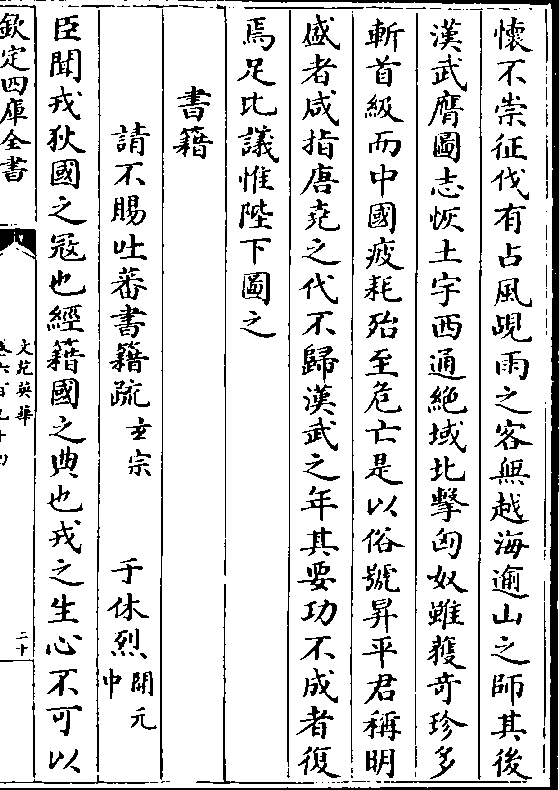 懷不崇征伐有占風覘雨之客無越海逾山之師其後
漢武膺圖志恢土宇西通絶域北擊匈奴雖獲奇珍多
斬首級而中國疲耗殆至危亡是以俗號昇平君稱明
盛者咸指唐堯之代不歸漢武之年其要功不成者復
焉足比議惟陛下圖之
書籍
請不賜吐蕃書籍疏 𤣥宗 于休烈 開元中
臣聞戎狄國之冦也經籍國之典也戎之生心不可以
欽定四庫全書
文苑英華
二十